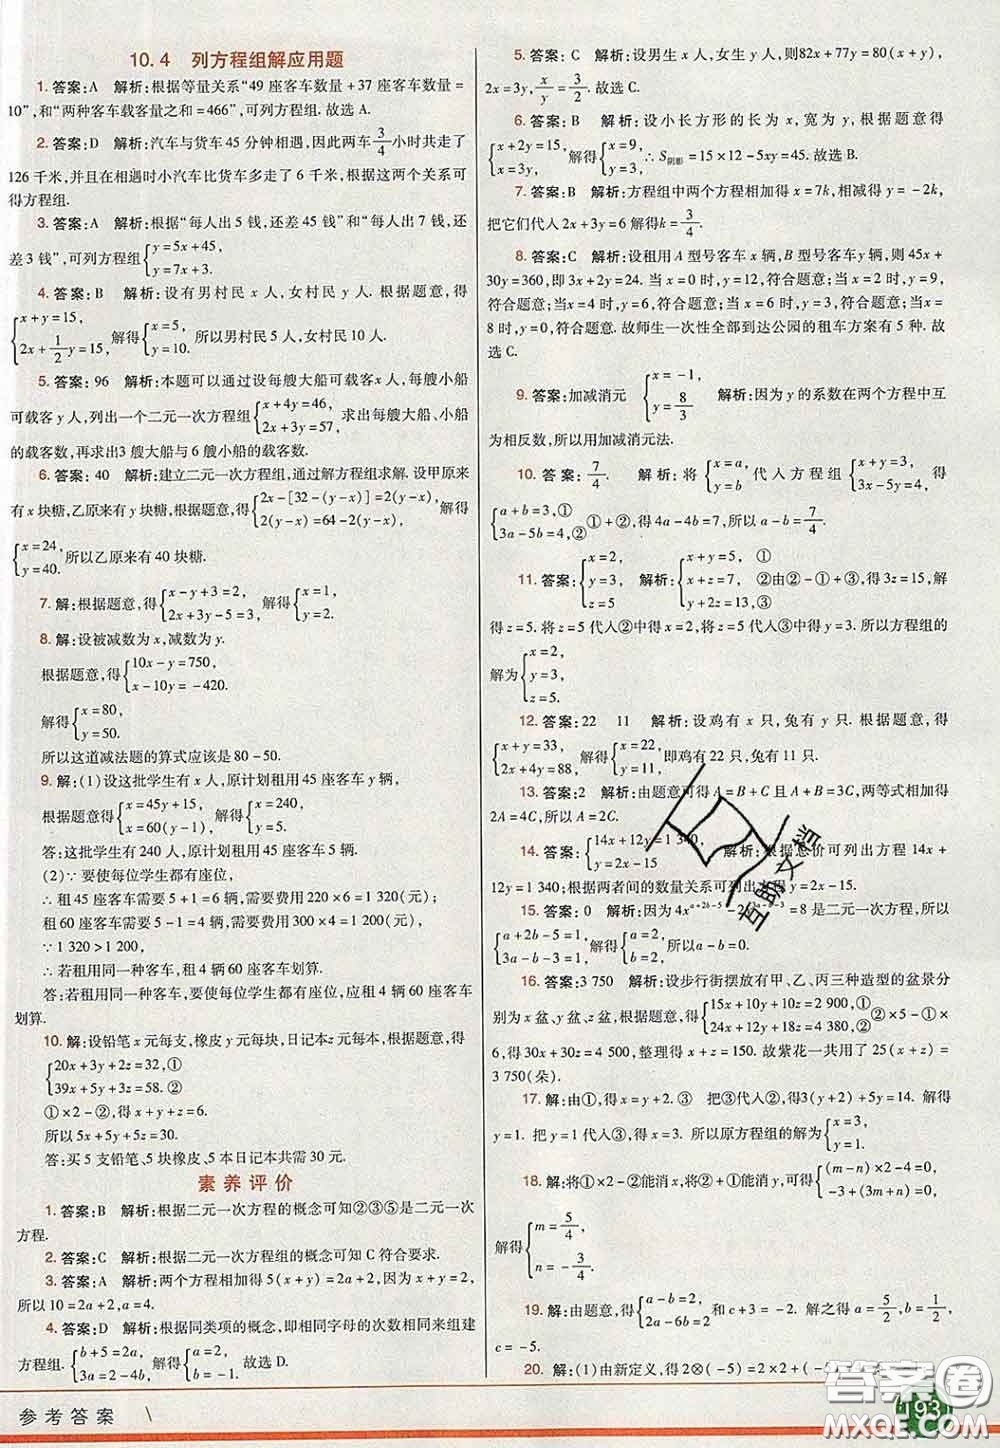 10.4 列方程组解应用题
1. 答案:A 解析:根据等量关系“49 座客车数量+37 座客车数量=
10”,和“两种客车载客量之和=466”,可列方程组. 故选 A.
2. 答案:D 解析:汽车与货车 45 分钟相遇,因此两车3/4小时共行驶
126 千米,并且在相遇时小汽车比货车多走了 6 千米,根据这两个关系可
得方程组.
3. 答案:A 解析:根据“每人出 5 钱,还差 45 钱”“每人出 7 钱,还
差 3 钱”,可列方程组{y=5x+45,
y=7x+3.
4. 答案:B 解析:设有男村民 x 人,女村民 y 人. 根据题意,得
{x+y=15,
2x+1/2y=15, 解得{x=5,
y=10. 所以男村民 5 人,女村民 10 人.
5. 答案:96 解析:本题可以通过设每艘大船可载客x人,每艘小船
可载客 y 人,列出一个二元一次方程组{x+4y=46,
2x+3y=57, 求出每艘大船、小船
的载客数,再求出3 艘大船与 6 艘小船的载客数.
6. 答案:40 解析:建立二元一次方程组,通过解方程组求解. 设甲原来
有 x 块糖,乙原来有 y 块糖,根据题意,得{2x-[32-(y-x)]=2(y-x)
2(y-x)=64-2(y-x). 解得
{x=24,
y=40. 所以乙原来有 40 块糖.
7. 解:根据题意,得{x-y+3=2,
2x+3y-5=3. 解得{x=1,
y=2.
8. 解:设被减数为 x,减数为 y.
根据题意,得{10x-y=750,
x-10y=-420.
解得{x=80,
y=50.
所以这道减法题的算式应该是 80-50.
9. 解:(1)设这批学生有 x 人,原计划租用 45 座客车 y 辆,
根据题意,得{x=45y+15,
x=60(y-1), 解得{x=240,
y=5.
答:这批学生有 240 人,原计划租用 45 座客车 5 辆.
(2)∵ 要使每位学生都有座位,
∴ 租 45 座客车需要 5+1=6 辆,需要费用 220×6=1 320(元),
租 60 座客车需要 5-1=4 辆,需要费用 300×4=1 200(元),
∵ 1 320>1 200,
∴ 若租用同一种客车,租 4 辆 60 座客车划算.
答:若租用同一种客车,要使每位学生都有座位,应该租 4 辆 60 座客车
划算.
10. 解:设铅笔 x 元每支,橡皮 y 元每块,日记本z 元每本,根据题意,得
{20x+3y+2z=32,①
39x+5y+3z=58.②
①×2-②,得 x+y+z=6.
所以 5x+5y+5z=30.
答:买 5 支铅笔、5 块橡皮、5 本日记本共需 30 元.
素养评价
1. 答案:B 解析:根据二元一次方程的概念可知②③⑤是二元一次
方程.
2. 答案:C 解析:根据二元一次方程组的概念可知 C 符合要求.
3. 答案:A 解析:两个方程相加得 5(x+y)=2a+2,因为 x+y=2,
所以 10=2a+2,a=4.
4. 答案:D 解析:根据同类项的概念,即相同字母的次数相同来组建
方程组.{b+5=2a,
2a=2-4b, 解得{a=2,
b=-1. 故选 D.
5. 答案:C 解析:设男生 x 人,女生 y 人,则82x+77y=80(x+y),
2x=3y,x/y=3/2. 故选 C.
6. 答案:B 解析:设小长方形的长为 x,宽为 y,根据题意得
{x+2y=15,
x=3y, 解得{x=9,
y=3. ∴ S阴影=15×12-5xy=45. 故选 B.
7. 答案:B 解析:方程组中两个方程相加得 x=7k,相减得 y=-2k,
把它们代入 2x+3y=6 解得k=3/4.
8. 答案:C 解析:设租用 A 型号客车 x 辆,B 型号客车 y 辆,则 45x+
30y=360,即 3x+2y=24. 当 x=0 时,y=12,符合题意;当 x=2 时,y=9,
符合题意;当x=4 时,y=6,符合题意;当 x=6 时,y=3,符合题意;当 x=
8 时,y=0,符合题意. 故师生一次性全部到达公园的租车方案有 5 种. 故
选 C.
9. 答案:加减消元 {x=-1,
y=8/3 解析:因为 y 的系数在两个方程中互
为相反数,所以用加减消元法.
10. 答案:7/4. 解析:将{x=a,
y=b 代入方程组{x+y=3,
3x-5y=4, 得
{a+b=3,①
3a-5b=4,② ①+②,得 4a-4b=7,所以 a-b=7/4.
11. 答案:{x=2,
y=3,
z=5 解析:{x+y=5, ①
x+z=7, ②
y+z=8. ③ ②由②-①+③,得 3z=15,解
得 z=5. 将 z=5 代入②中得 x=2,将 z=5 代入③中得 y=3. 所以方程组的
解为{x=2,
y=3,
z=5.
12. 答案:22 11 解析:设鸡有 x 只,兔有 y 只. 根据题意,得
{x+y=33,
2x+4y=88, 解得{x=22,
y=11. 即鸡有 22 只,兔有 11 只.
13. 答案:2 解析:由题意可得 A=B+C 且 A+B=3C,两等式相加得
2A=4C,所以 A=2C.
14. 答案:{14x+12y=1 340,
y=2x-15 解析:根据总价可列出方程 14x+
12y=1 340;根据两者间的数量关系可列出方程 y=2x-15.
15. 答案:0 解析:因为4x^{a+2b-5}-2y^{3a-b-3}=8 是二元一次方程,所以
{a+2b-5=1,
3a-b-3=1, 解得{a=2,
b=2, 所以a-b=0.
16. 答案:3 750 解析:设步行街摆放有甲、乙、丙三种造型的盆景分
别为 x 盆、y 盆、z 盆,根据题意,得{15x+10y+10z=2 900,①
24x+12y+18z=4 380,② ②×5-①
×6,得 30x+30z=4 500,整理得 x+z=150. 故紫花一共用了 25(x+z)=
3 750(朵).
17. 解:由①,得 x=y+2. ③ 把③代入②,得 3(y+2)+5y=14. 解得
y=1. 把 y=1 代入③,得 x=3. 所以原方程组的解为{x=3,
y=1.
18. 解:将①×2-②能消 x,将②+①能消 y,得{(m-n)×2-4=0,
-3+(3m+n)=0,
解得{m=5/4,
n=-3/4.
19. 解:由题意,得{4a-2b=9
2a-6b=2 和 c+3=-2. 解之得 a=5/2,b=1/2,
c=-5.
20. 解:(1)由新定义,得 2⊗(-5)=2×2+(-5)
参考答案
193
答案圈
MXQE.COM
互助文档